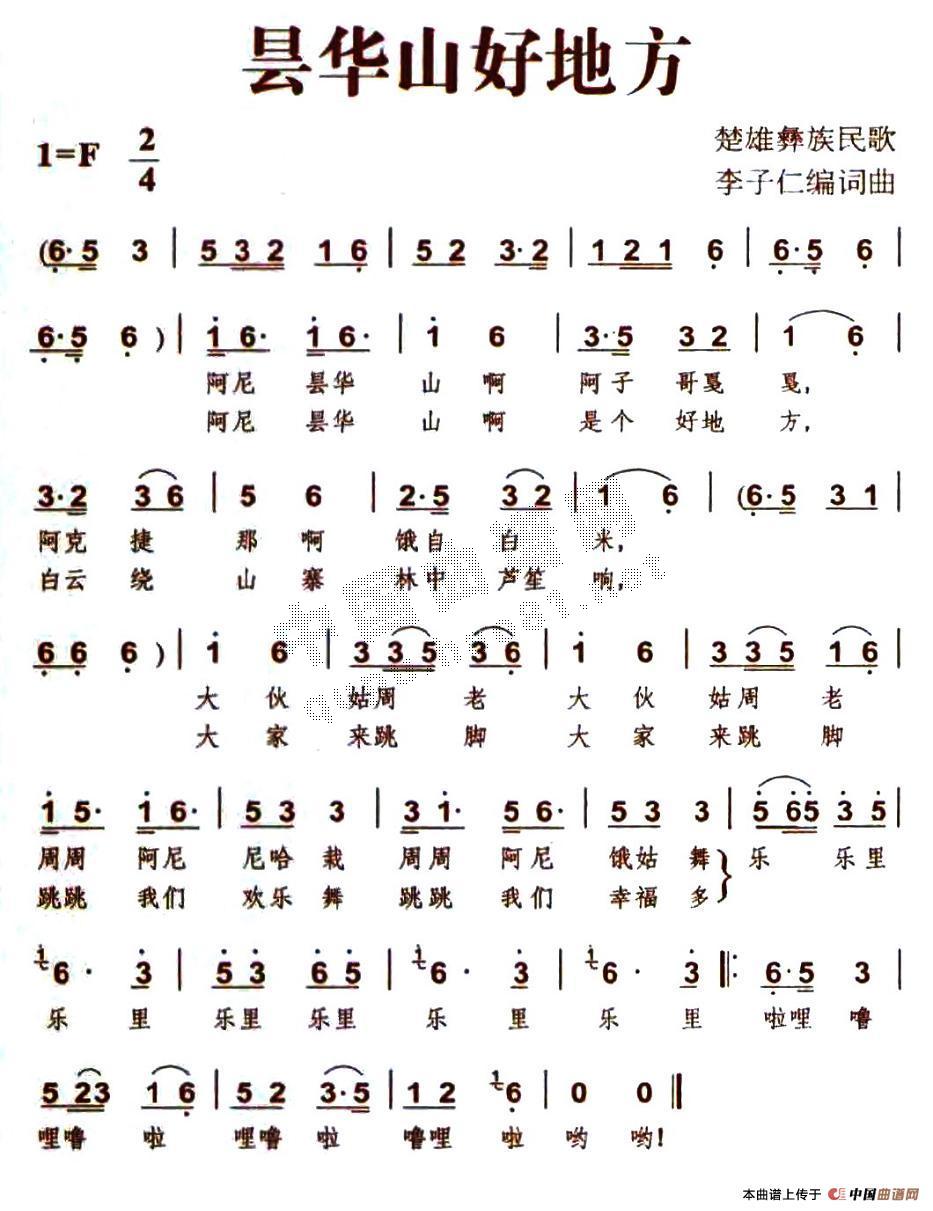 昙华山好地方
1=F 2/4
楚雄彝族民歌
李子仁编词曲
(6·5 3 | 532 16 | 52 3·2 | 121 6 | 6·5 6 |
6·5 6 ) | 1 6· 1 6· | 1 6 | 3·5 32 | 1 6 |
阿尼 昙华 山 啊 阿子 哥戛 戛,
阿尼 昙华 山 啊 是个 好地 方,
3·2 36 | 5 6 | 2·5 32 | 1 6 | (6·5 31 |
阿克 捷 那 啊 饿自 白 米,
白云 绕 山 寨 林中 芦笙 响,
66 6 ) | 1 6 | 335 36 | 1 6 | 335 16 |
大 伙 姑周 老 大 伙 姑周 老
大 家 来跳 脚 大 家 来跳 脚
1 5· 1 6· | 53 3 | 3 1· 5 6· | 53 3 | 565 35 |
周周 阿尼 尼哈 栽 周周 阿尼 饿姑 舞 乐 乐里
跳跳 我们 欢乐 舞 跳跳 我们 幸福 多
1 6· 3 | 53 65 | 1 6· 3 | 1 6· 3 ‖: 6·5 3 |
乐 里 乐里 乐里 乐 里 乐 里 啦哩 噜
5 23 16 | 52 3·5 | 12 1 6 | 0 0 ‖
哩噜 啦 哩噜 啦 噜哩 啦 哟 哟!
中国曲谱网
本曲谱上传于 中国曲谱网